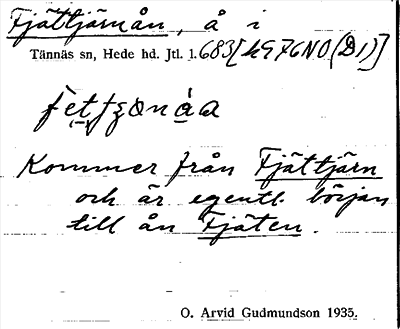 Fjättjärnån, å i
Tännäs sn, Hede hd. Jtl. l. 683[h976NO(D1)]
Kommer från Fjättjärn
och är egentl. början
till ån Fjäten.
O. Arvid Gudmundson 1935.